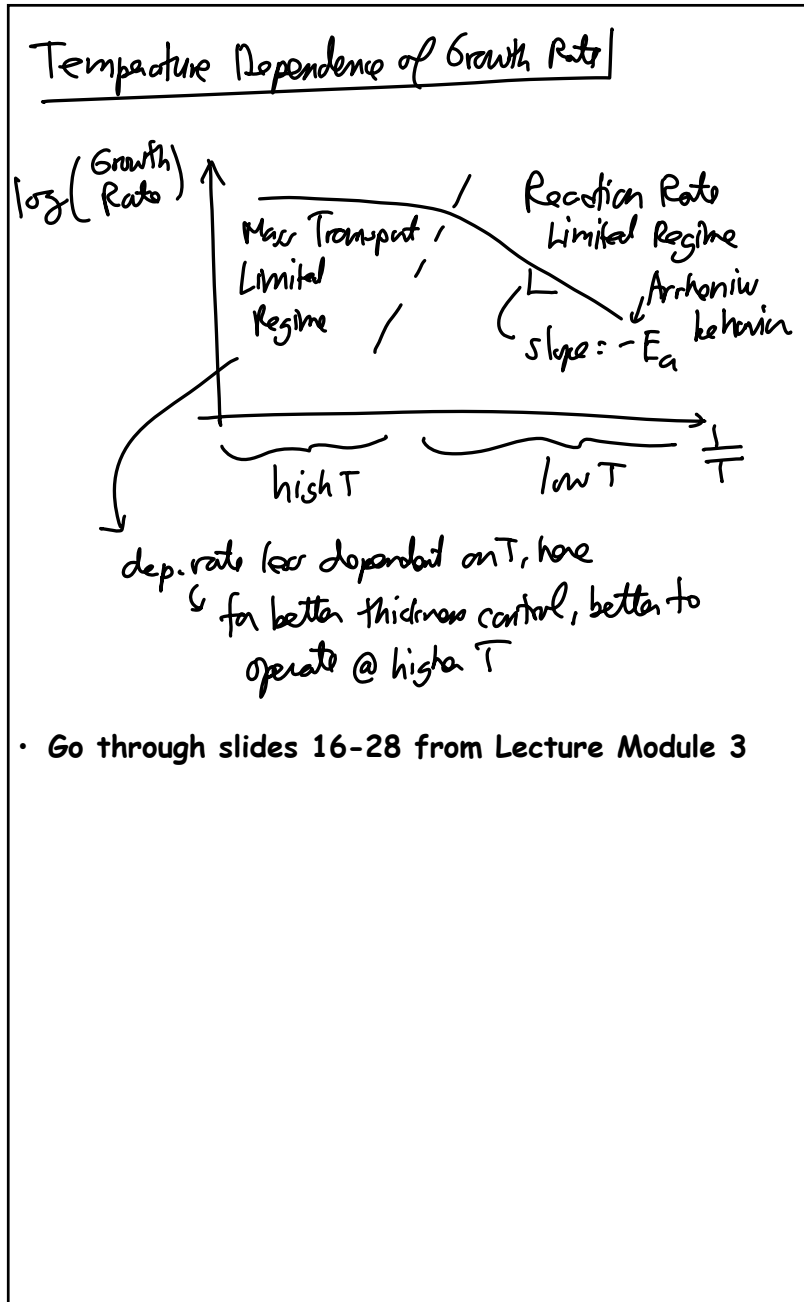 Temperature Dependence of Growth Rate
log(Growth Rate)
Mass Transport
Limited
Regime
Reaction Rate
Limited Regime
Arrhenius
behavior
slope = -Ea
high T
low T
1/T
dep. rate less dependent on T, here
for better thickness control, better to
operate @ higher T
· Go through slides 16-28 from Lecture Module 3